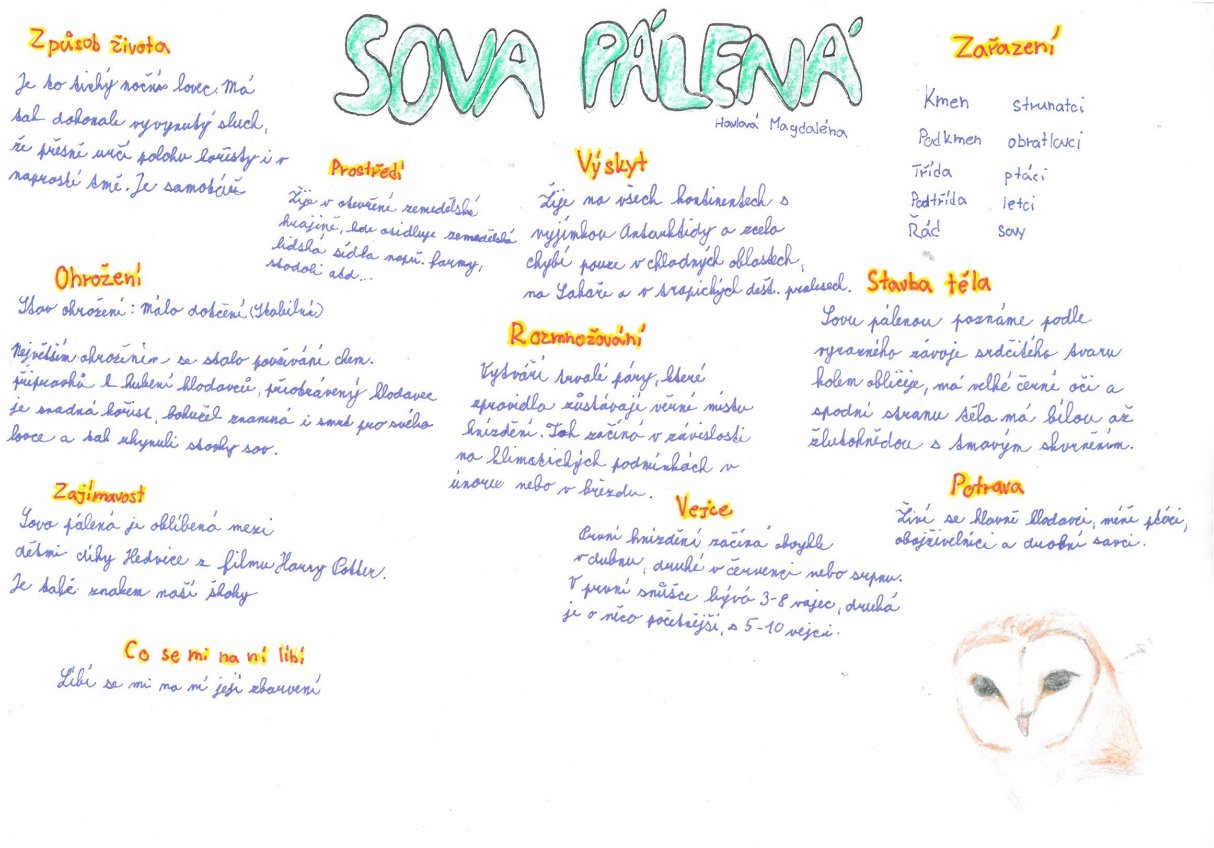 SOVA PÁLENÁ
Havlová Magdaléna
Způsob života
Je to tichý noční lovec. Má
tak dokonale vyvynutý sluch,
že přesně určí polohu kořisty i v
naprosté tmě. Je samotář
Prostředí
Žije v otevřené zemedělské
krajině, kde osidluje zemedělská
lidská sídla např. farmy,
stodoli atd...
Výskyt
Žije na všech kontinentech s
vyjímkou Antarktidy a zcela
chybí pouze v chladných oblastech,
na Sahaře a v tropických dešt. pralesech.
Zařazení
Kmen strunatci
Podkmen obratlovci
Třída ptáci
Podtřída letci
Řád sovy
Ohrožení
Stav ohrožení: Málo dotčení (Stabilní)
Největším ohrožením se stalo použivání chem.
přípravků k hubení hlodavců, přiotrávený hlodavec
je snadná kořist, bohužel znamná i smrt pro svého
lovce a tak uhynuli stovky sov.
Rozmnožování
Vytváří trvalé páry, které
zpravidla zůstávají věrné místu
hnízdění. Tok začíná v závislosti
na klimatických podmínkách v
únoru nebo v březdu.
Stavba těla
Sovu pálenou poznáme podle
vyrazného závoje srdčitého tvaru
kolem obličeje, má velké černé oči a
spodní stranu těla má bílou až
žlutohnědou s tmavým skvrněním.
Zajímavost
Sova pálená je oblíbená mezi
dětmi díky Hedvice z filmu Harry Potter.
Je také znakem naší školy
Vejce
První hnízdění začíná obvykle
v dubnu, druhé v červenci nebo srpnu.
V první snůšce bývá 3-8 vajec, druhá
je o něco početnější, s 5-10 vejci.
Potrava
Živí se hlavně hlodavci, méně ptáci,
obojživelníci a drobní savci.
Co se mi na ní líbí
Líbí se mi na ní její zbarvení